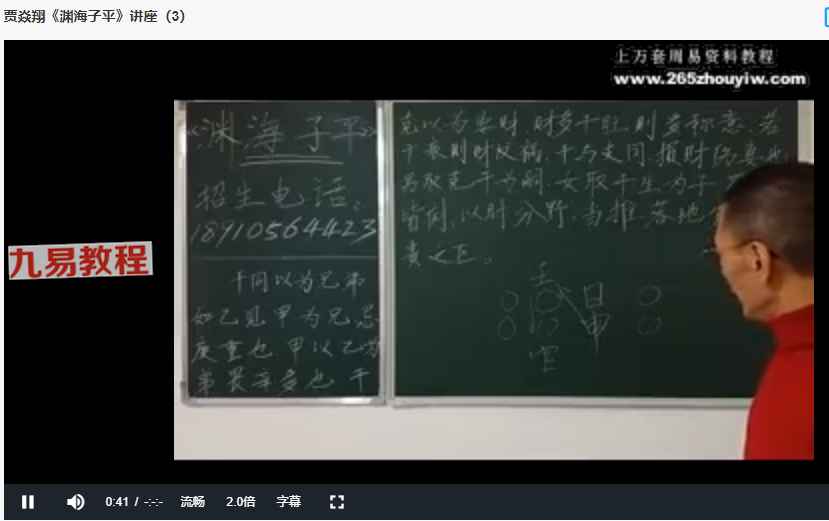 贾焱翔《渊海子平》讲座（3）
上万套周易资料教程
www.265zhouyiw.com
《渊海子平》
招生电话：
18910564423
干同以为兄弟
如乙见甲为兄忌
庚重也甲以乙为
弟畏辛多也干
克以为妻财.财多干旺.则
称意.若
干衰则财反祸.干与支同.损财伤妻
男取克干为嗣.女取干生为子
以时分野.当推.落地
贵
壬
日
甲
九易教程
0:41 / -:-:-
流畅
2.0倍
字幕